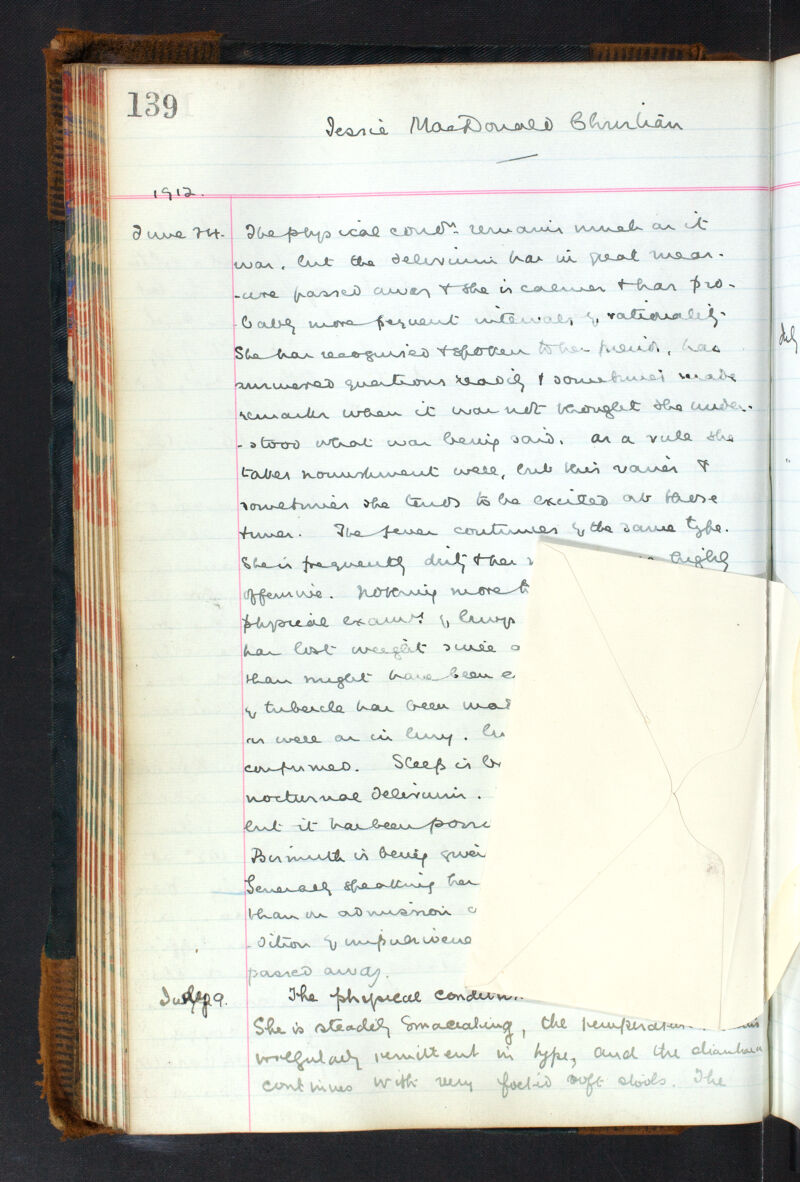 139
Jessie MacDonald Christian
1912.
June 24. The physical condn. remains much as it
was, but the delirium has in great meas-
-ure passed away & she is calmer & has pro-
-bably more frequent intervals of rationality.
She has recognised & spoken to her friends, has
answered questions readily & sometimes made
remarks when it was not thought she under-
-stood what was being said. As a rule she
takes nourishment well, but this varies &
sometimes she tends to be excited at these
times. The fever continues of the same type.
She is frequently dirty & her highly
offensive. Nothing more
physical examn. of lungs
has lost weight since
than might have been
of tubercle has been
as well as in lung.
confirmed. Sleep is
nocturnal delirium.
but it has been
Bismuth is being
Generally speaking her
than on admission
-dition of impulsive
passed away.
July 9. The physical
She is steadily emaciating, the
irregularly remittent in type, and the diarrhoea
continues with very foetid soft stools. The
July
"